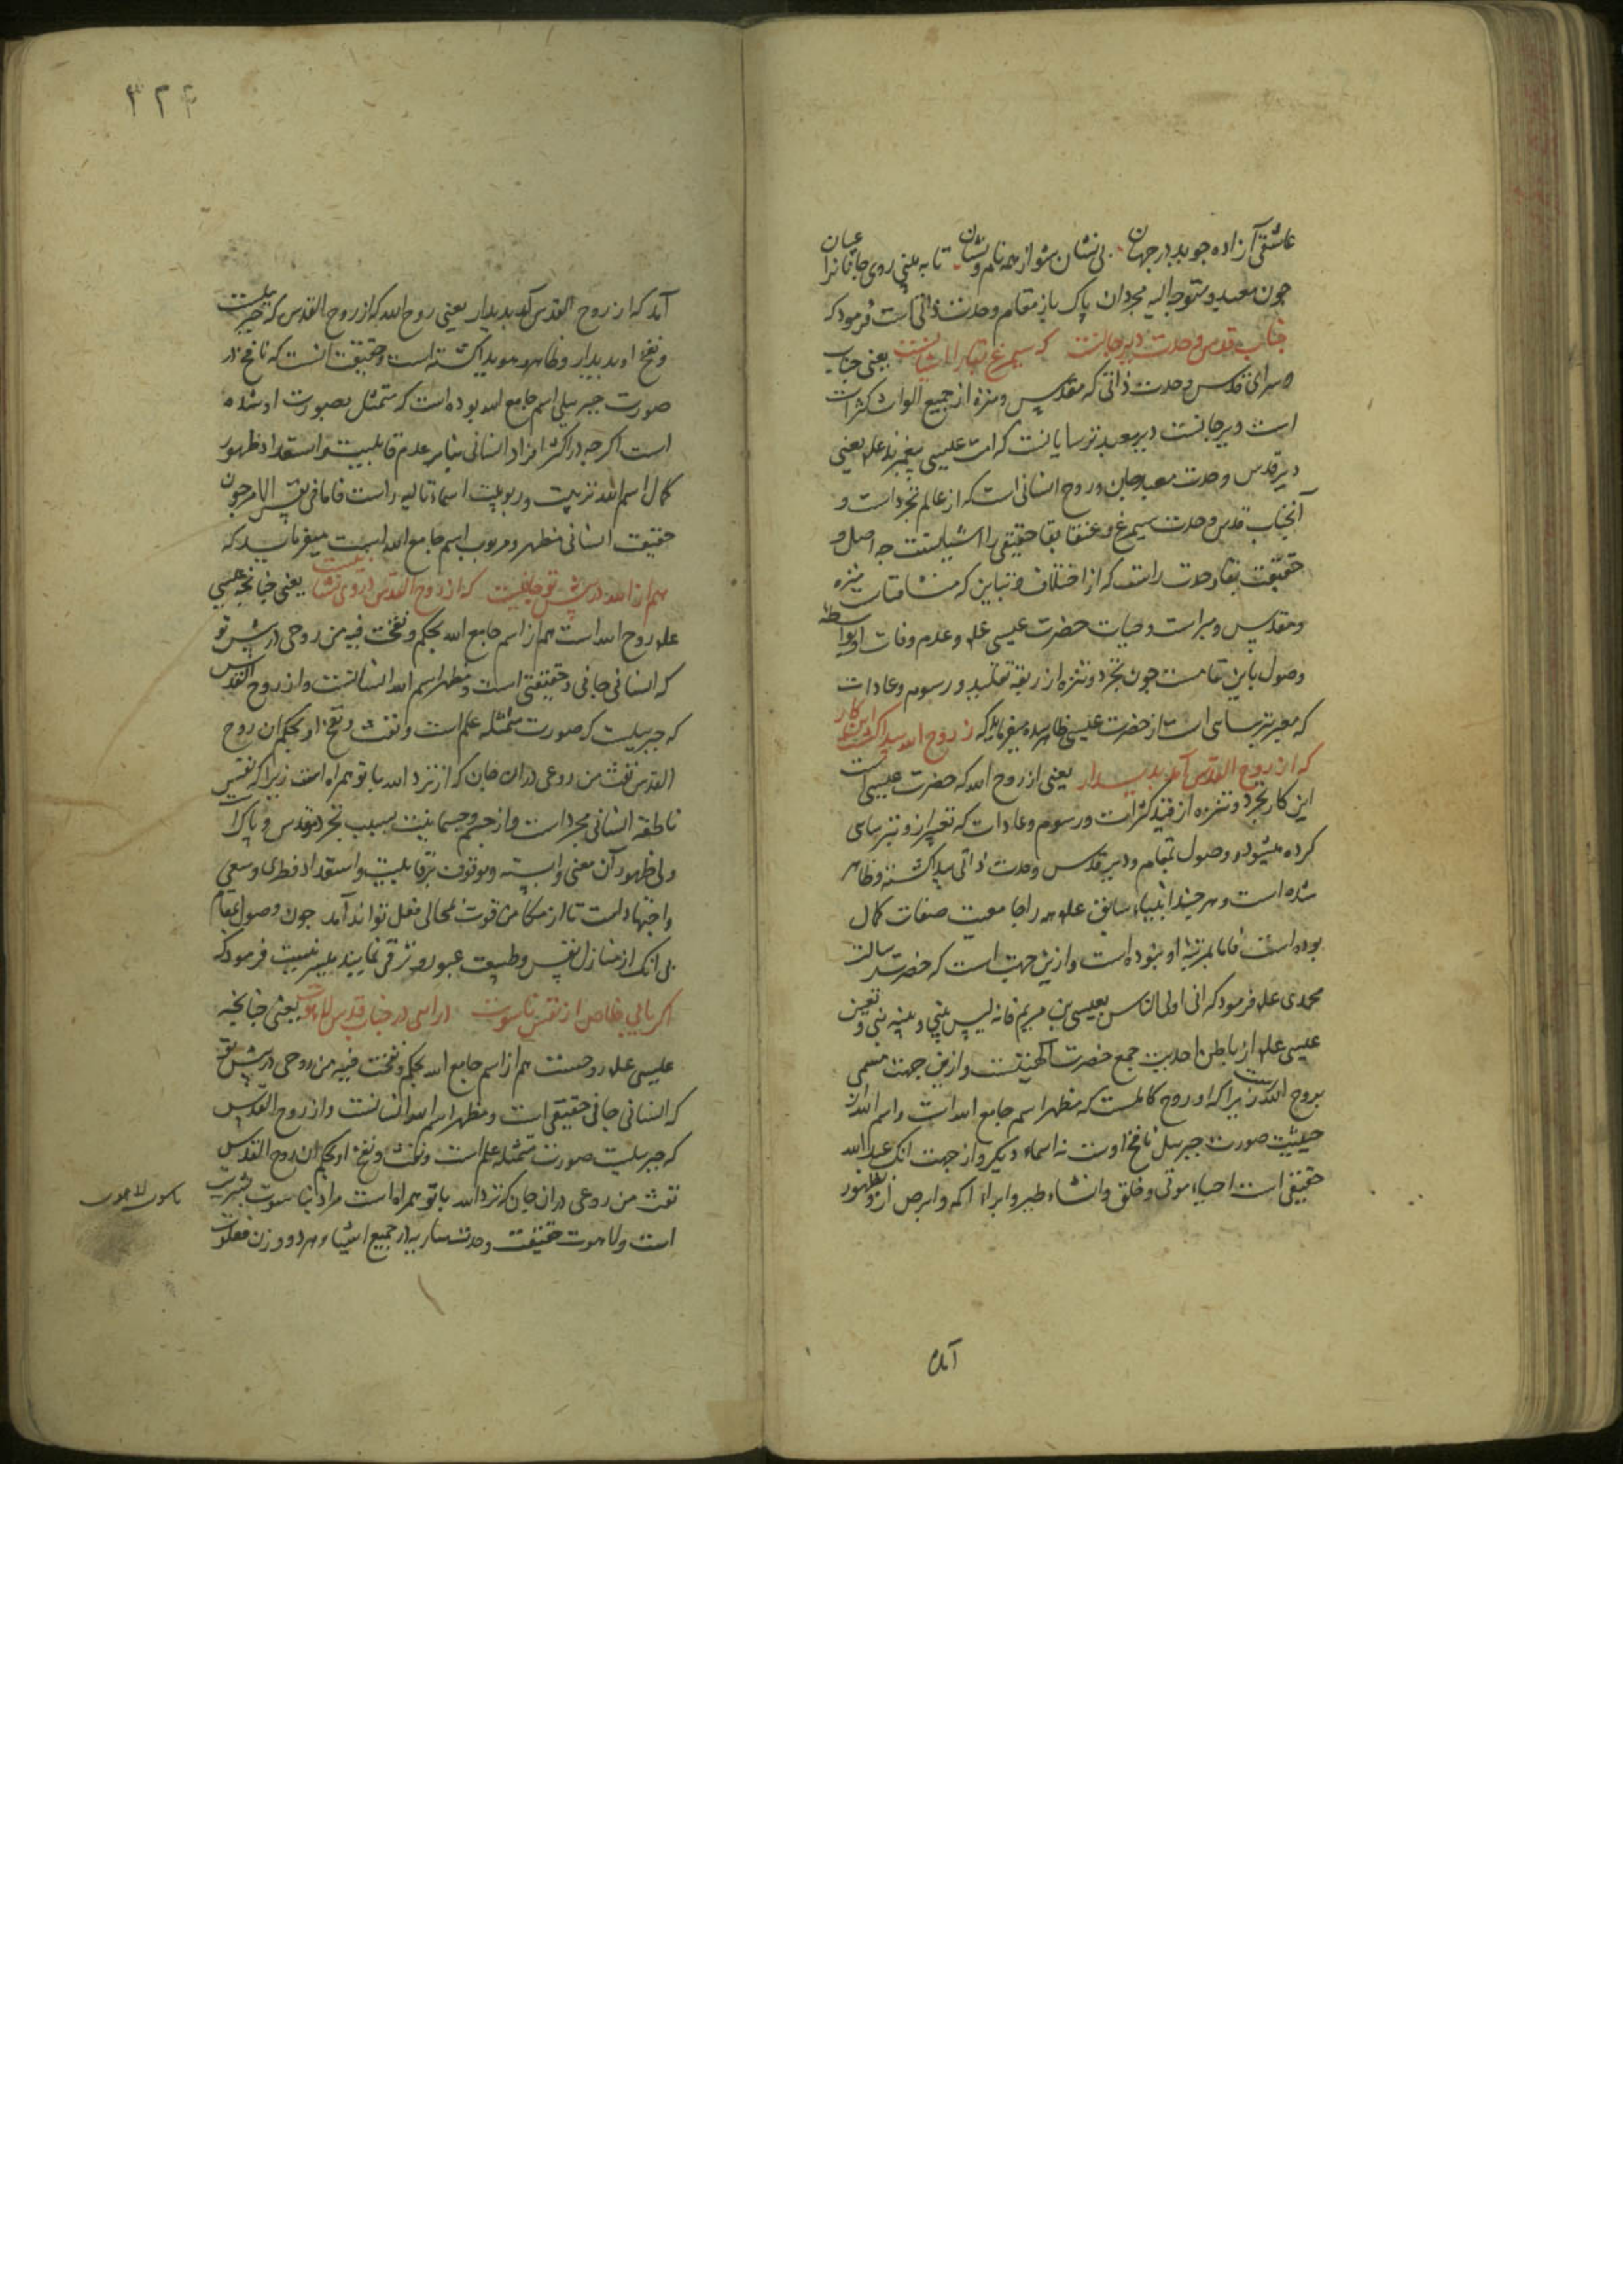 عاشقی آزاده جوید در جهان بی نشان شو از همه نام و نشان تا به بینی روی جانانرا عیان
چون معبد و متوجه الیه مجردان پاک باز مقام وحدت ذاتی است فرمود که
جناب قدس وحدت دیر جانست که سیمرغ بقا را آشیانست یعنی جناب
و سرای قدس وحدت ذاتی که مقدس و منزه از جمیع الواث کثرات
است دیر جانست دیر معبد ترسایانست که امت عیسی پیغمبرند علم یعنی
دیر قدس وحدت معبد جان و روح انسانی است که از عالم تجرد است و
آنجناب قدس وحدت سیمرغ و عنقا بقا حقیقی را آشیانست چه اصل و
حقیقت بقا وحدت راست که از اختلاف و تباین که منشا فناست منزه
و مقدس و مبراست و حیات حضرت عیسی علم و عدم وفات او بواسطه
وصول باین مقامست چون تجرد و تنزه از ربقه تقلید و رسوم و عادات
که معبر بترسایی است از حضرت عیسی ظاهر شده میفرماید که ز روح الله پیدا گشت این کار
که از روح القدس آمد پدیدار یعنی از روح الله که حضرت عیسی است
این کار تجرد و تنزه از قید کثرات و رسوم و عادات که تعبیر ازو بترسایی
کرده میشود و وصول بمقام و دیر قدس وحدت ذاتی پیدا گشته و ظاهر
شده است و هر چند انبیاء سابق علم را جامعیت صفات کمال
بوده است فاما بمرتبه او نبوده است و ازین جهت است که حضرت رسالت
محمدی علم فرمود که انی اولی الناس بعیسی بن مریم فانه لیس بینی و بینه نبی و تعین
عیسی علم از باطن احدیت جمع حضرت الهیتست و ازین جهت مسمی
بروح الله است زیرا که او روح کاملست که مظهر اسم جامع الله است و اسم الله از
حیثیت صورت جبریل نافخ اوست نه اسماء دیگر و از جهت انک عبد الله
حقیقی است احیاء موتی و خلق و انشاء طیر و ابراء اکمه و ابرص ازو بظهور
آمد
۳۲۴
آمد که از روح القدس آمد پدیدار یعنی روح الله که از روح القدس که جبریلست
و نفخ او پدیدار و ظاهر و هویدا گشته است و حقیقت آنست که نافخ در
صورت جبریلی اسم جامع الله بوده است که متمثل بصورت او شده
است اگرچه در اکثر افراد انسانی بنابر عدم قابلیت و استعداد ظهور
کمال اسم الله تربیت و ربوبیت اسماء تالیه راست فاما فی نفس الامر چون
حقیقت انسانی مظهر و مربوب اسم جامع الله است میفرماید که
هم از الله در پیش تو جانیست که از روح القدس در وی نشانیست یعنی چنانچه عیسی
علم روح الله است هم از اسم جامع الله بحکم و نفخت فیه من روحی در پیش تو
که انسانی جانی و حقیقتی است و مظهر اسم الله انسانست و از روح القدس
که جبریلست که صورت متمثله علم است و نفث و نفخ او بحکم ان روح
القدس نفث من روعی در ان جان که از نزد الله با تو همراه است زیرا که نفس
ناطقه انسانی مجرد است و از جسم و جسمانیت بسبب تجرد مقدس و پاک است
ولی ظهور آن معنی وابسته و موقوف بر قابلیت و استعداد فطری و سعی
و اجتهادست تا از مکامن قوت بمجالی فعل تواند آمد چون وصول بمقام
بی انک از منازل نفس و طبیعت عبور و ترقی نمایند میسر نیست فرمود که
اگر یابی خلاص از نفس ناسوت درآیی در جناب قدس لاهوت یعنی چنانچه
عیسی علم روحست هم از اسم جامع الله بحکم و نفخت فیه من روحی در پیش تو
که انسانی جانی حقیقی است و مظهر اسم الله انسانست و از روح القدس
که جبریلست صورت متمثله علم است و نفث و نفخ او بحکم ان روح القدس
نفث من روعی در ان جان که نزد الله با تو همراه است مراد بناسوت بشریت
است و لاهوت حقیقت وحدت ساریه در جمیع اشیا و هر دو وزن فعلوت
ناسوت لاهوت